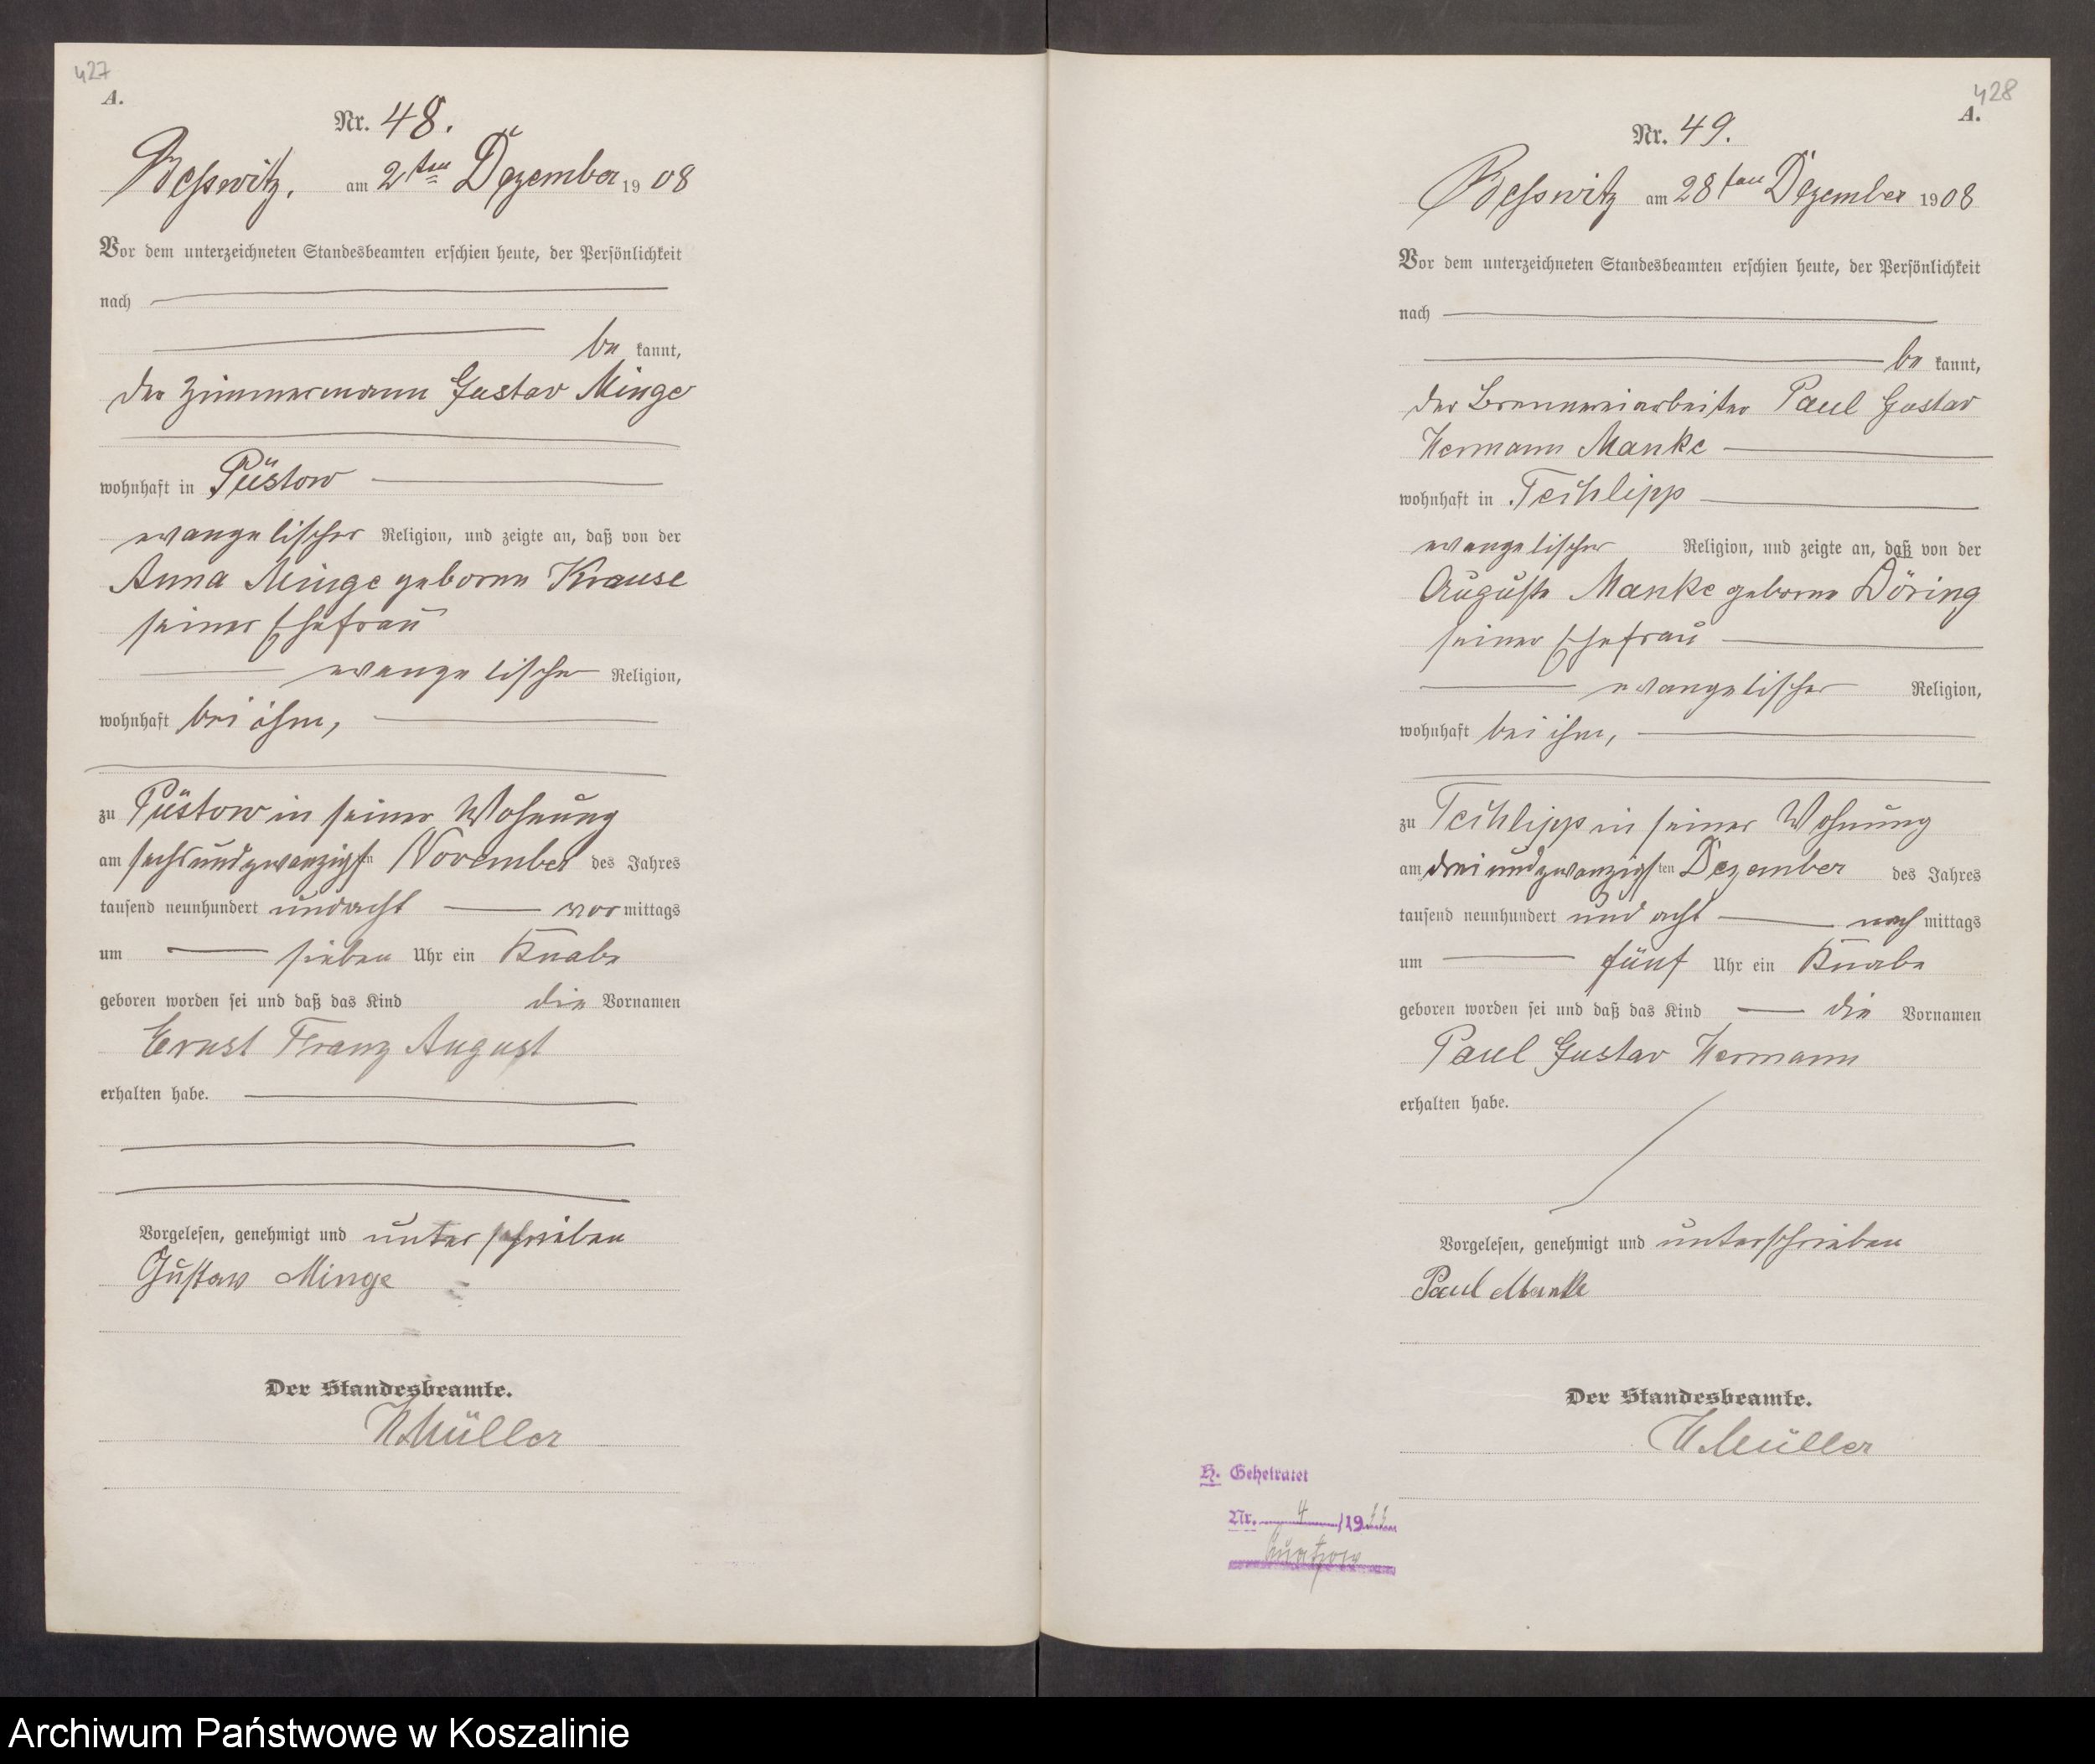 427
A.
Nr. 48.
Besswitz, am 2ten Dezember 1908
Vor dem unterzeichneten Standesbeamten erschien heute, der Persönlichkeit
nach
be kannt,
der Zimmermann Gustav Minge
wohnhaft in Püstow
evangelischer Religion, und zeigte an, daß von der
Anna Minge geborne Krause
seiner Ehefrau
evangelischer Religion,
wohnhaft bei ihm,
zu Püstow in seiner Wohnung
am sechsundzwanzigsten November des Jahres
tausend neunhundert undacht vormittags
um sieben Uhr ein Knabe
geboren worden sei und daß das Kind die Vornamen
Ernst Franz August
erhalten habe.
Vorgelesen, genehmigt und unterschrieben
Gustav Minge
Der Standesbeamte.
H. Müller
428
A.
Nr. 49.
Besswitz am 28ten Dezember 1908
Vor dem unterzeichneten Standesbeamten erschien heute, der Persönlichkeit
nach
be kannt,
der Brennereiarbeiter Paul Gustav
Hermann Manke
wohnhaft in Techlipp
evangelischer Religion, und zeigte an, daß von der
Auguste Manke geborne Döring
seiner Ehefrau
evangelischer Religion,
wohnhaft bei ihm,
zu Techlipp in seiner Wohnung
am dreiundzwanzigsten Dezember des Jahres
tausend neunhundert und acht nachmittags
um fünf Uhr ein Knabe
geboren worden sei und daß das Kind die Vornamen
Paul Gustav Hermann
erhalten habe.
Vorgelesen, genehmigt und unterschrieben
Paul Manke
Der Standesbeamte.
H. Müller
H. Geheiratet
Nr. 4 /19
Archiwum Państwowe w Koszalinie